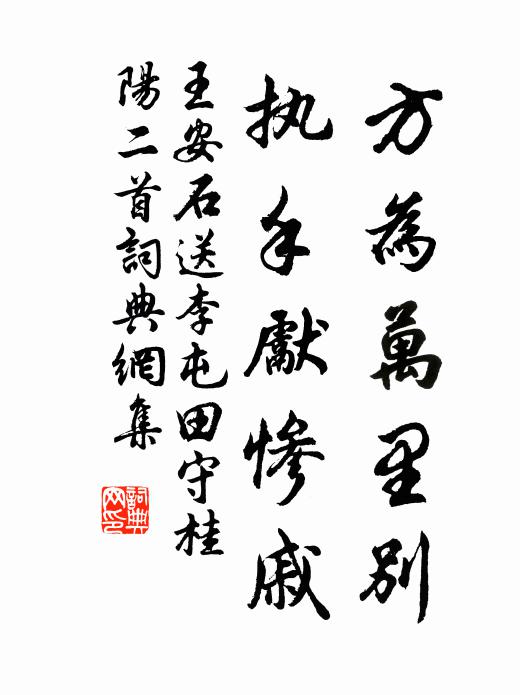 方為萬里別
执手獻慘戚
王安石送李屯田守桂
陽二首詞典網集
詞典
网印